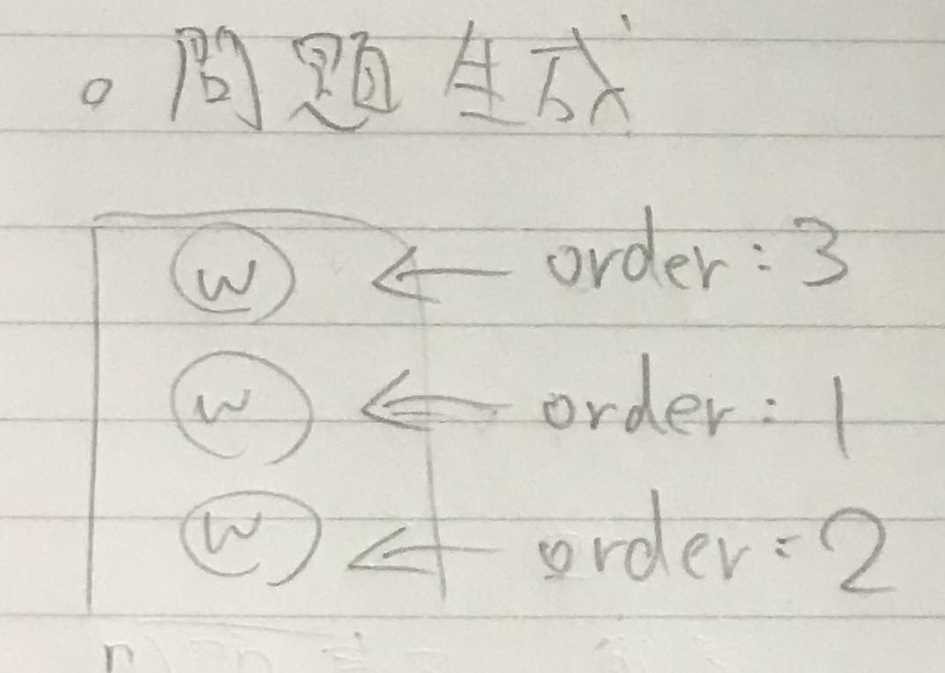 。問題生成
w ← order:3
w ← order:1
w ← order:2